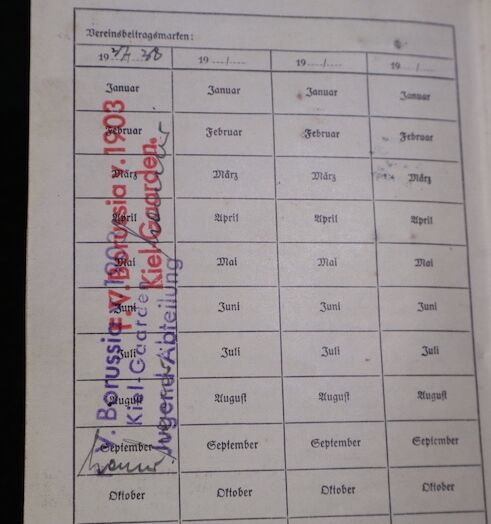 Vereinsbeitragsmarken:
1937/38 19..../.... 19..../.... 19..../....
Januar Januar Januar Januar
Februar Februar Februar Februar
März März März März
April April April April
Mai Mai Mai Mai
Juni Juni Juni Juni
Juli Juli Juli Juli
August August August August
September September September September
Oktober Oktober Oktober Oktober
T. V. Borussia v. 1903
Kiel-Gaarden.
V. Borussia v. 1903
Kiel-Gaarden
Jugend-Abteilung